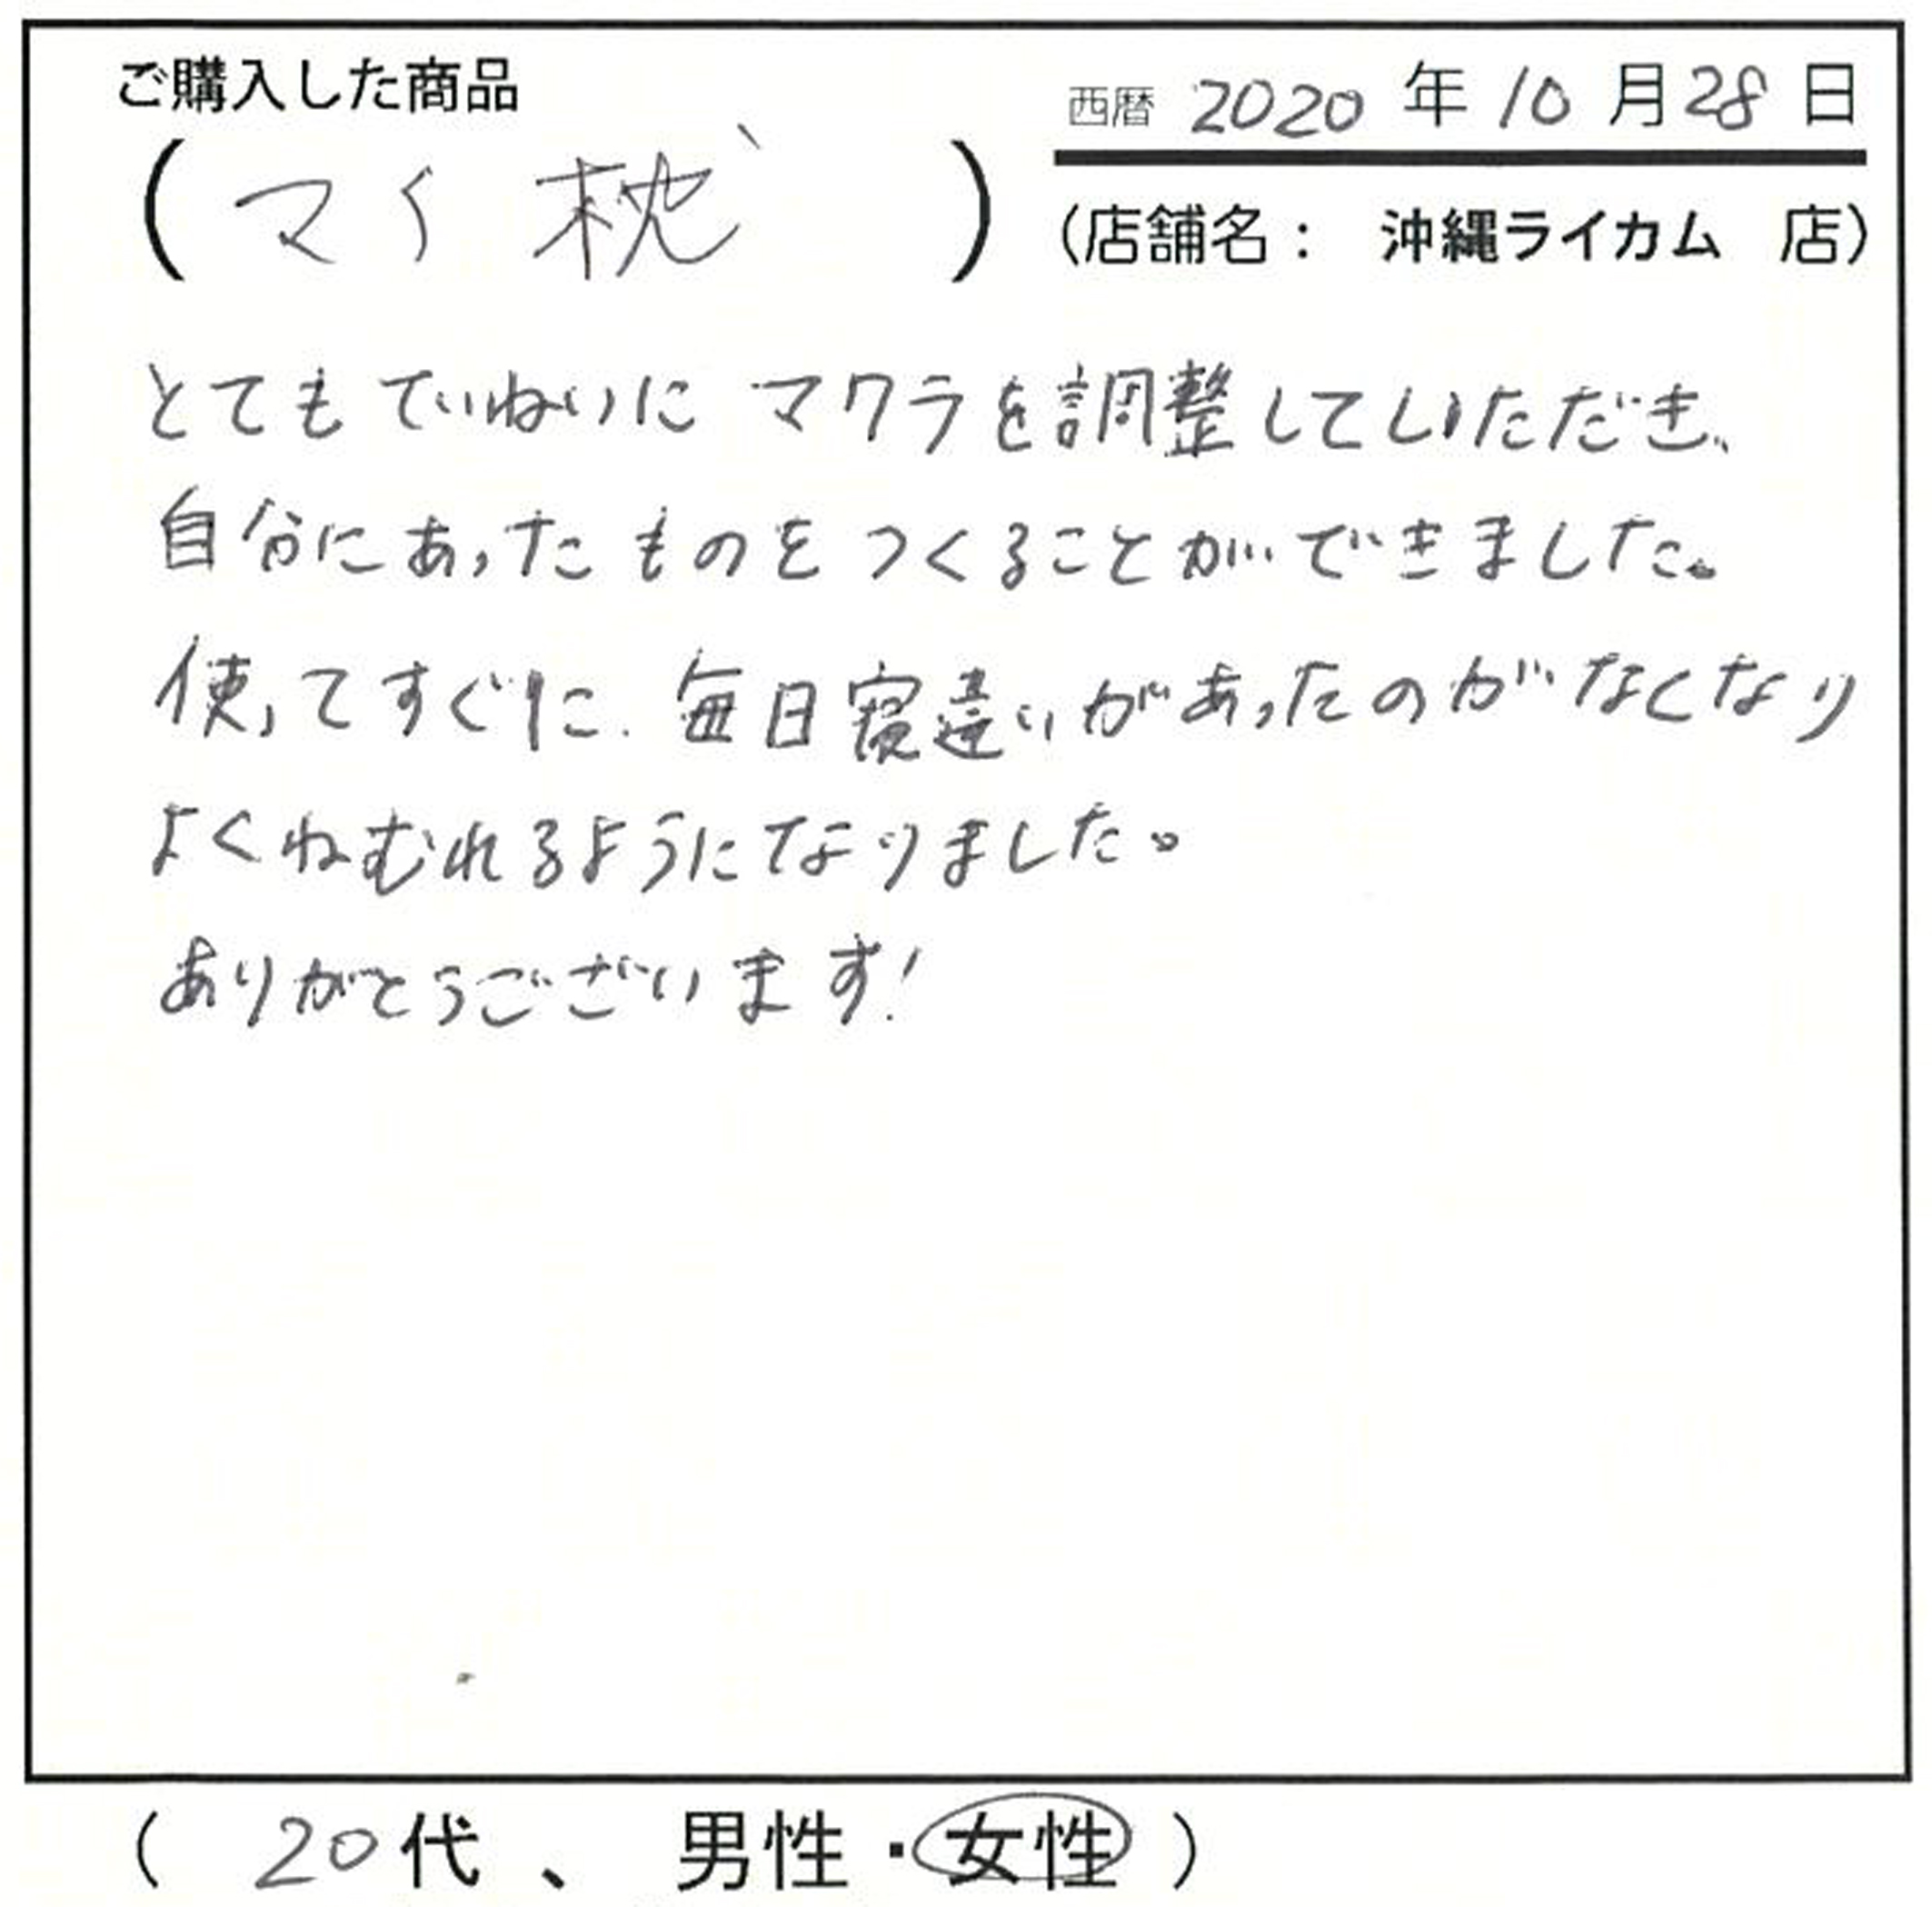 ご購入した商品
西暦 2020 年 10 月 28 日
( マイ 枕 )
(店舗名： 沖縄ライカム 店)
とても ていねいに マクラを調整していただき、
自分にあったものを つくることができました。
使ってすぐに、毎日寝違いがあったのがなくなり
よくねむれるようになりました。
ありがとうございます!
( 20代 、 男性・女性 )